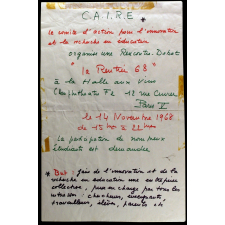 C.A.I.R.E *
Le comité d'action pour l'innovation
et la recherche en éducation
organise une Rencontre Débat
"la Rentrée 68"
à la Halle aux Vins
Amphithéatre F2 12 rue Cuvier
Paris V
le 14 Novembre 1968
de 18 hrs à 22 hrs
La participation de nombreux
étudiants est demandée
* But : faire de l'innovation et de la
recherche en éducation une entreprise
collective, prise en charge par tous les
intéressés : chercheurs, enseignants,
travailleurs, élèves, parents etc